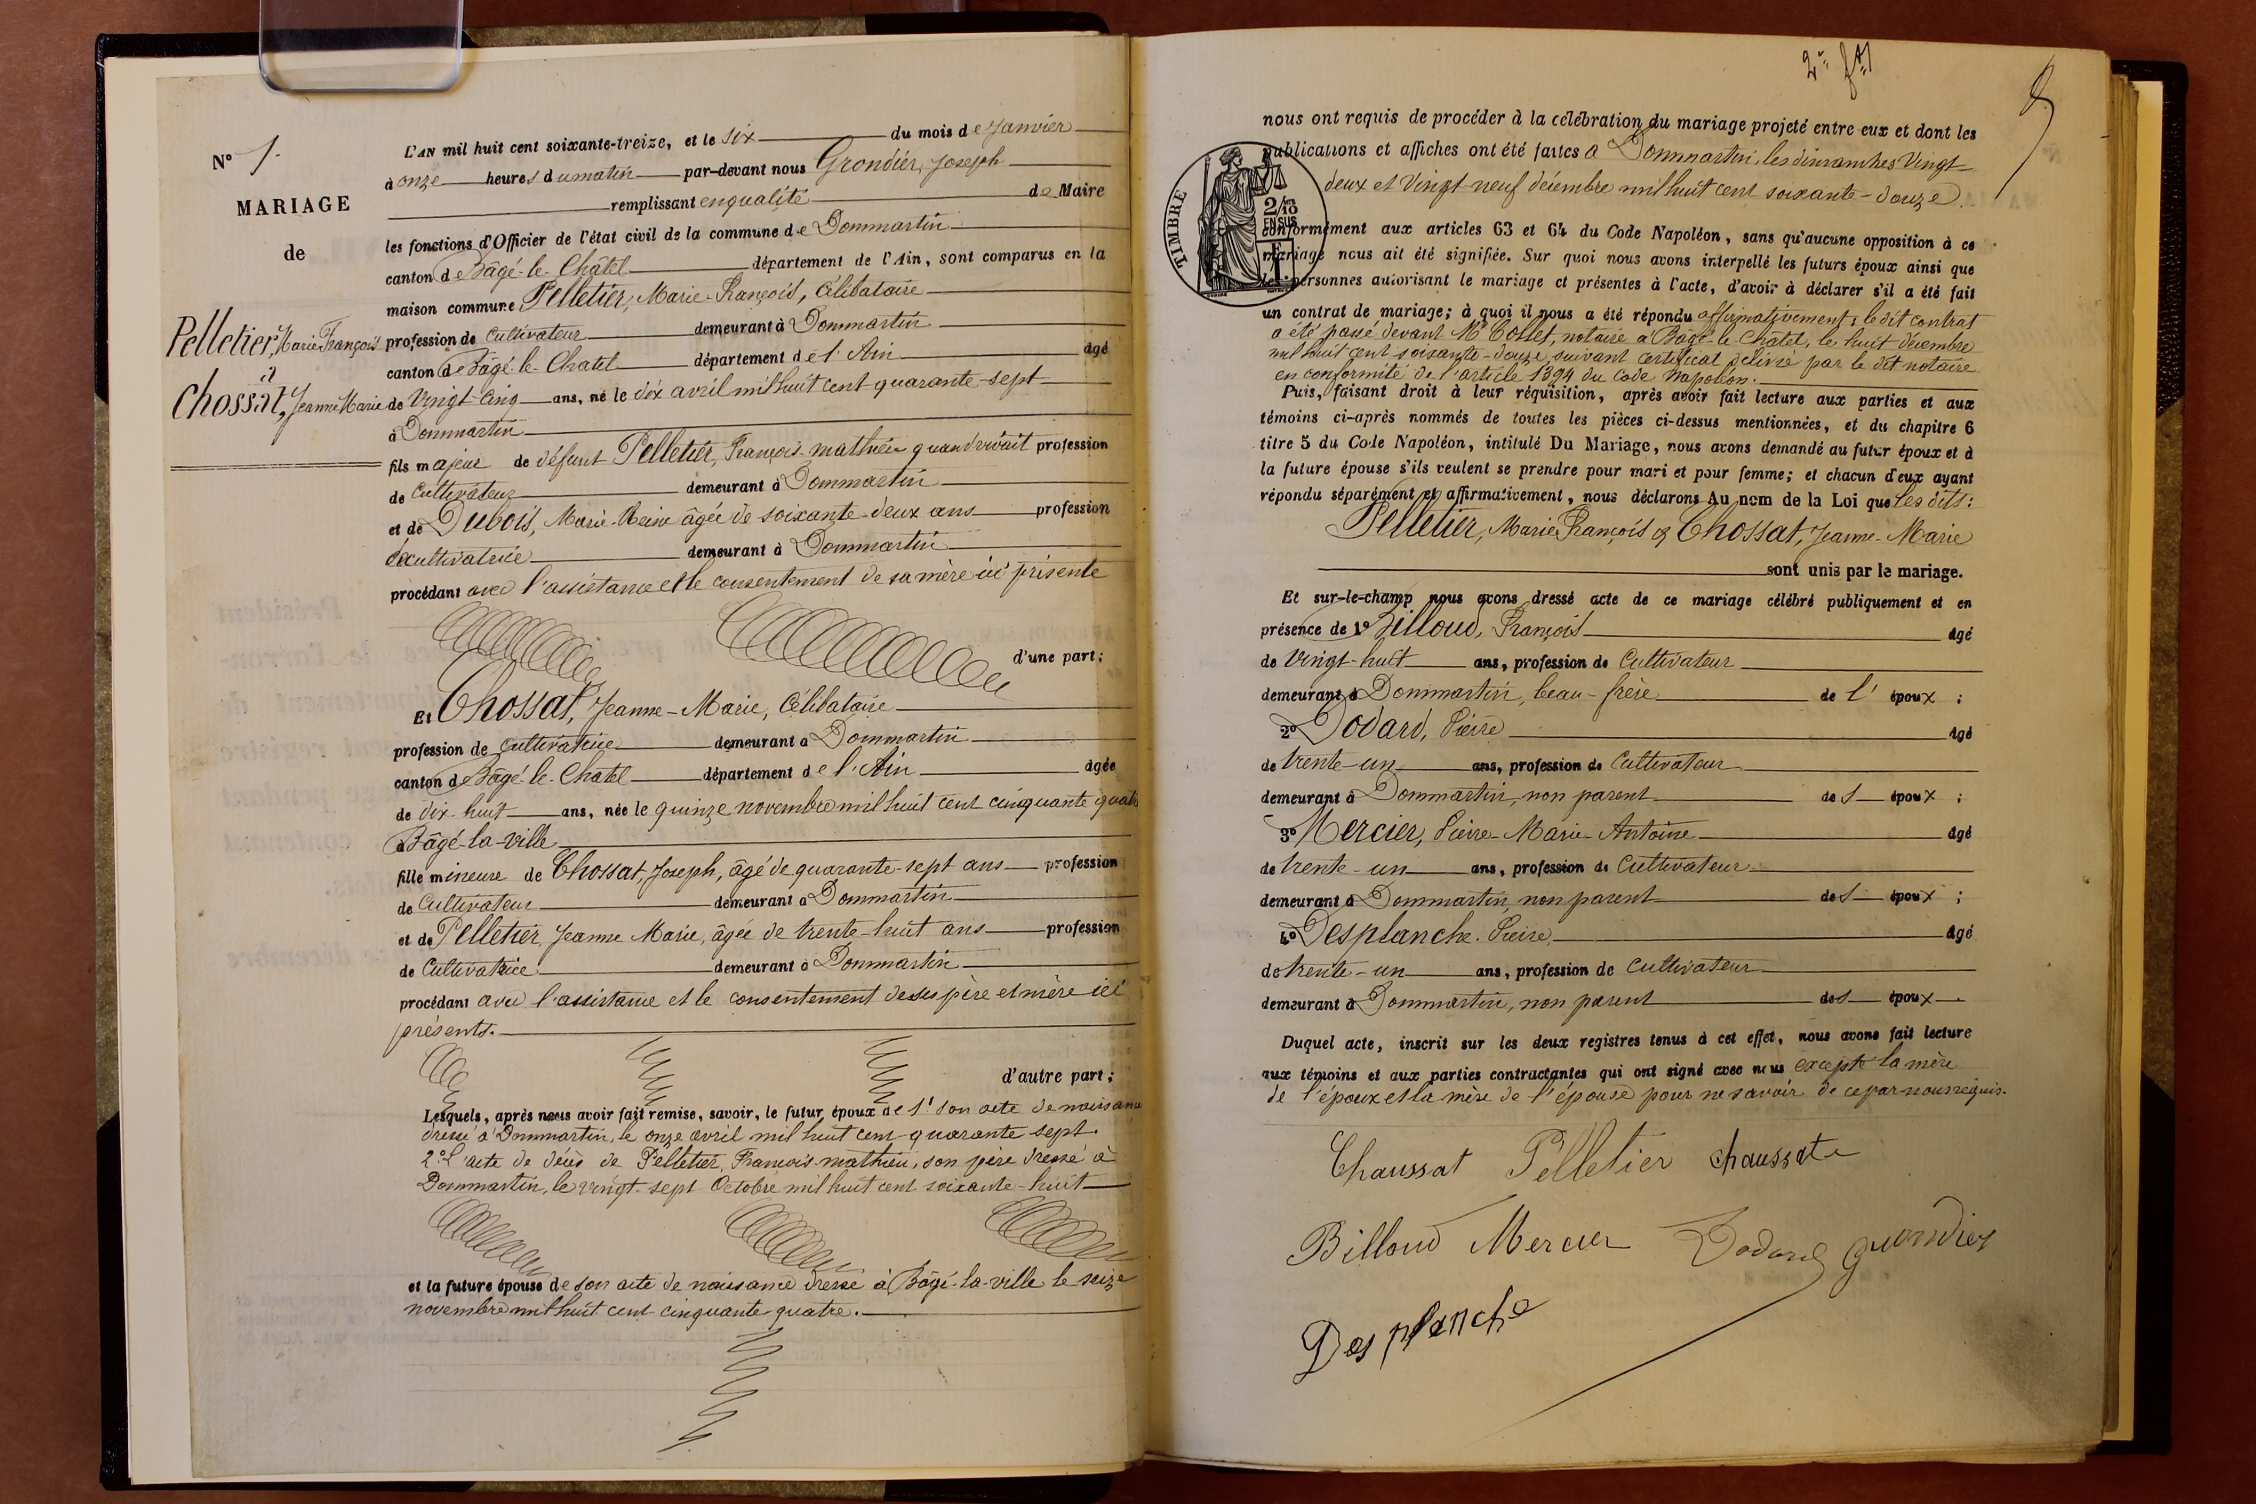 N° 1.
MARIAGE
de
Pelletier, Marie François
et
Chossat, Jeanne Marie
L'AN mil huit cent soixante-treize, et le six du mois de Janvier
à onze heures du matin par-devant nous Grondier, Joseph
remplissant en qualité de Maire
les fonctions d'Officier de l'état civil de la commune de Dommartin
canton de Bâgé-le-Châtel département de l'Ain, sont comparus en la
maison commune Pelletier, Marie-François, Célibataire
profession de Cultivateur demeurant à Dommartin
canton de Bâgé-le-Chatel département de l'Ain âgé
de Vingt-Cinq ans, né le dix avril mil huit cent quarante-sept
à Dommartin
fils majeur de défunt Pelletier, François-mathieu quand vivait profession
de Cultivateur demeurant à Dommartin
et de Dubois, Marie-Reine âgée de soixante-deux ans profession
de cultivatrice demeurant à Dommartin
procédant avec l'assistance et le consentement de sa mère ici présente
d'une part;
Et Chossat, Jeanne-Marie, Célibataire
profession de cultivatrice demeurant à Dommartin
canton de Bâgé-le-Chatel département de l'Ain âgée
de dix-huit ans, née le quinze novembre mil huit cent cinquante quatre
à Bâgé-la-ville
fille mineure de Chossat, Joseph, âgé de quarante-sept ans profession
de Cultivateur demeurant à Dommartin
et de Pelletier, Jeanne Marie, âgée de trente-huit ans profession
de Cultivatrice demeurant à Dommartin
procédant avec l'assistance et le consentement de ses père et mère ici
présents.
d'autre part;
Lesquels, après nous avoir fait remise, savoir, le futur époux de 1° son acte de naissance
dressé à Dommartin, le onze avril mil huit cent quarante sept.
2° l'acte de décès de Pelletier, François-mathieu, son père dressé à
Dommartin, le vingt-sept Octobre mil huit cent soixante-huit
et la future épouse de son acte de naissance dressé à Bâgé-la-ville le seize
novembre mil huit cent cinquante quatre.
2e ft
nous ont requis de procéder à la célébration du mariage projeté entre eux et dont les
publications et affiches ont été faites à Dommartin, les dimanches Vingt-
deux et Vingt-neuf décembre mil huit cent soixante-douze.
TIMBRE
2/10
EN SUS
conformément aux articles 63 et 64 du Code Napoléon, sans qu'aucune opposition à ce
mariage nous ait été signifiée. Sur quoi nous avons interpellé les futurs époux ainsi que
les personnes autorisant le mariage et présentes à l'acte, d'avoir à déclarer s'il a été fait
un contrat de mariage; à quoi il nous a été répondu affirmativement; le dit contrat
a été passé devant Me Collet, notaire à Bâgé-le-Chatel, le huit décembre
mil huit cent soixante-douze, suivant certificat délivré par le dit notaire
en conformité de l'article 1394 du Code Napoléon.
Puis, faisant droit à leur réquisition, après avoir fait lecture aux parties et aux
témoins ci-après nommés de toutes les pièces ci-dessus mentionnées, et du chapitre 6
titre 5 du Code Napoléon, intitulé Du Mariage, nous avons demandé au futur époux et à
la future épouse s'ils veulent se prendre pour mari et pour femme; et chacun d'eux ayant
répondu séparément et affirmativement, nous déclarons Au nom de la Loi que les dits:
Pelletier, Marie François & Chossat, Jeanne-Marie
sont unis par le mariage.
Et sur-le-champ nous avons dressé acte de ce mariage célébré publiquement et en
présence de 1° Billoud, François âgé
de Vingt-huit ans, profession de Cultivateur
demeurant à Dommartin, beau-frère de l'époux;
2° Dodard, Pierre âgé
de trente-un ans, profession de Cultivateur
demeurant à Dommartin, non parent des époux;
3° Mercier, Pierre-Marie-Antoine âgé
de trente-un ans, profession de Cultivateur
demeurant à Dommartin, non parent des époux;
4° Desplanche. Pierre, âgé
de trente-un ans, profession de Cultivateur
demeurant à Dommartin, non parent des époux.
Duquel acte, inscrit sur les deux registres tenus à cet effet, nous avons fait lecture
aux témoins et aux parties contractantes qui ont signé avec nous excepté la mère
de l'époux et la mère de l'épouse pour ne savoir de ce par nous requis.
Chaussat Pelletier chaussat
Billoud Mercier Dodard Grondier
Desplanche